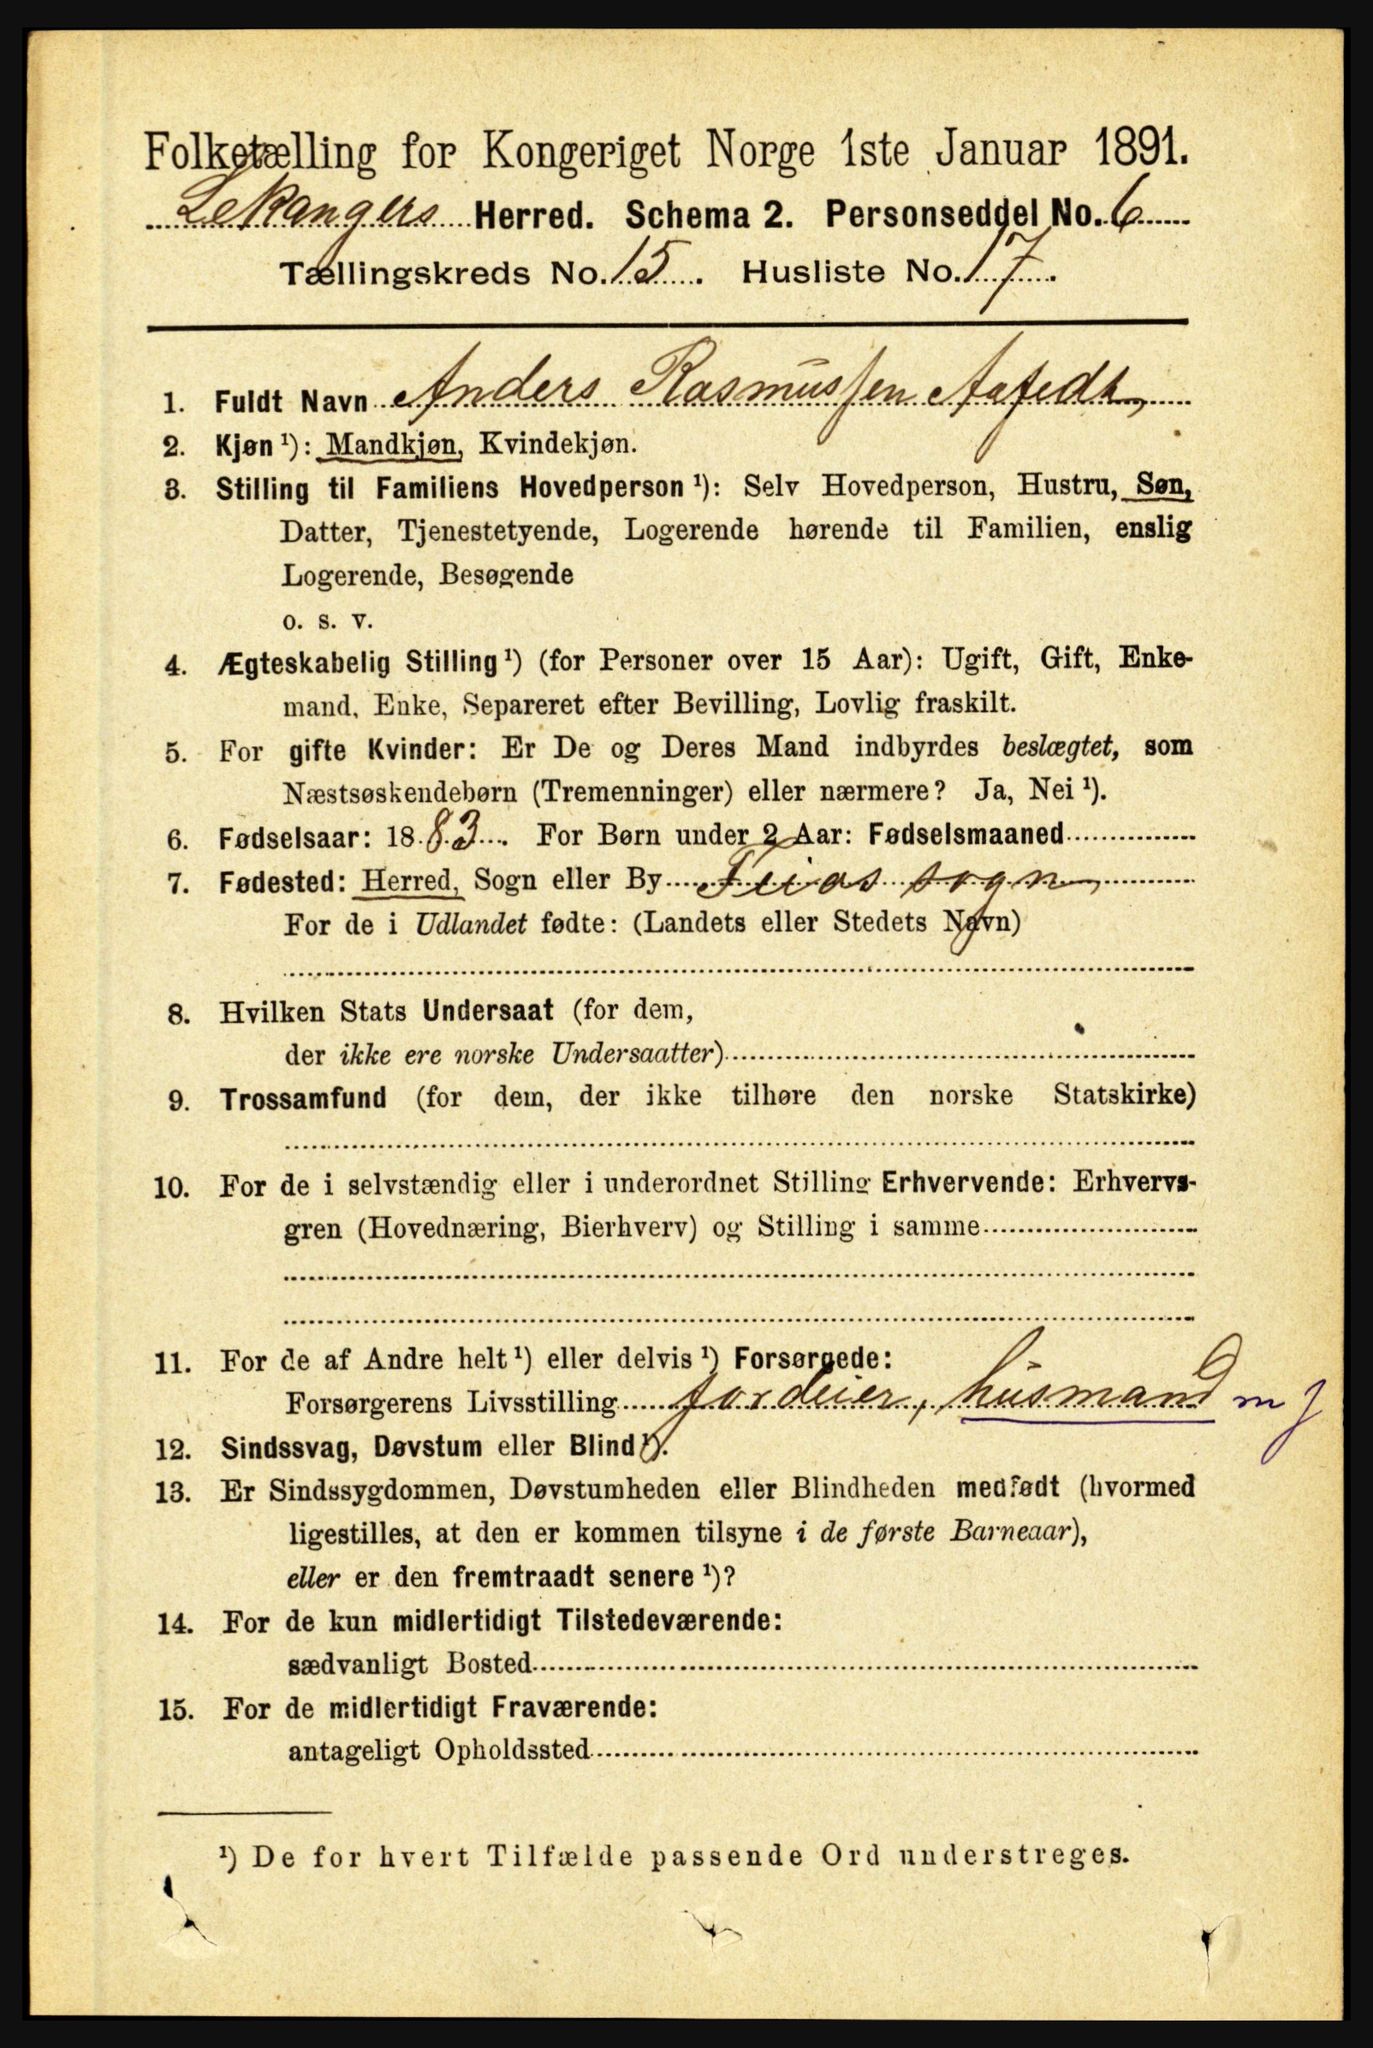 Folketælling for Kongeriget Norge 1ste Januar 1891.
Lekangers Herred. Schema 2. Personseddel No. 6
Tællingskreds No. 15. Husliste No. 17.
1. Fuldt Navn Anders Rasmussen Aafedt,
2. Kjøn ¹): Mandkjøn, Kvindekjøn.
3. Stilling til Familiens Hovedperson ¹): Selv Hovedperson, Hustru, Søn,
Datter, Tjenestetyende, Logerende hørende til Familien, enslig
Logerende, Besøgende
o. s. v.
4. Ægteskabelig Stilling ¹) (for Personer over 15 Aar): Ugift, Gift, Enke-
mand, Enke, Separeret efter Bevilling, Lovlig fraskilt.
5. For gifte Kvinder: Er De og Deres Mand indbyrdes beslægtet, som
Næstsøskendebørn (Tremenninger) eller nærmere? Ja, Nei ¹).
6. Fødselsaar: 1883. For Børn under 2 Aar: Fødselsmaaned
7. Fødested: Herred, Sogn eller By Feios sogn,
For de i Udlandet fødte: (Landets eller Stedets Navn)
8. Hvilken Stats Undersaat (for dem,
der ikke ere norske Undersaatter)
9. Trossamfund (for dem, der ikke tilhøre den norske Statskirke)
10. For de i selvstændig eller i underordnet Stilling Erhvervende: Erhvervs-
gren (Hovednæring, Bierhverv) og Stilling i samme
11. For de af Andre helt ¹) eller delvis ¹) Forsørgede:
Forsørgerens Livsstilling Jordeier, husmand m J
12. Sindssvag, Døvstum eller Blind ¹).
13. Er Sindssygdommen, Døvstumheden eller Blindheden medfødt (hvormed
ligestilles, at den er kommen tilsyne i de første Barneaar),
eller er den fremtraadt senere ¹)?
14. For de kun midlertidigt Tilstedeværende:
sædvanligt Bosted
15. For de midlertidigt Fraværende:
antageligt Opholdssted
¹) De for hvert Tilfælde passende Ord understreges.